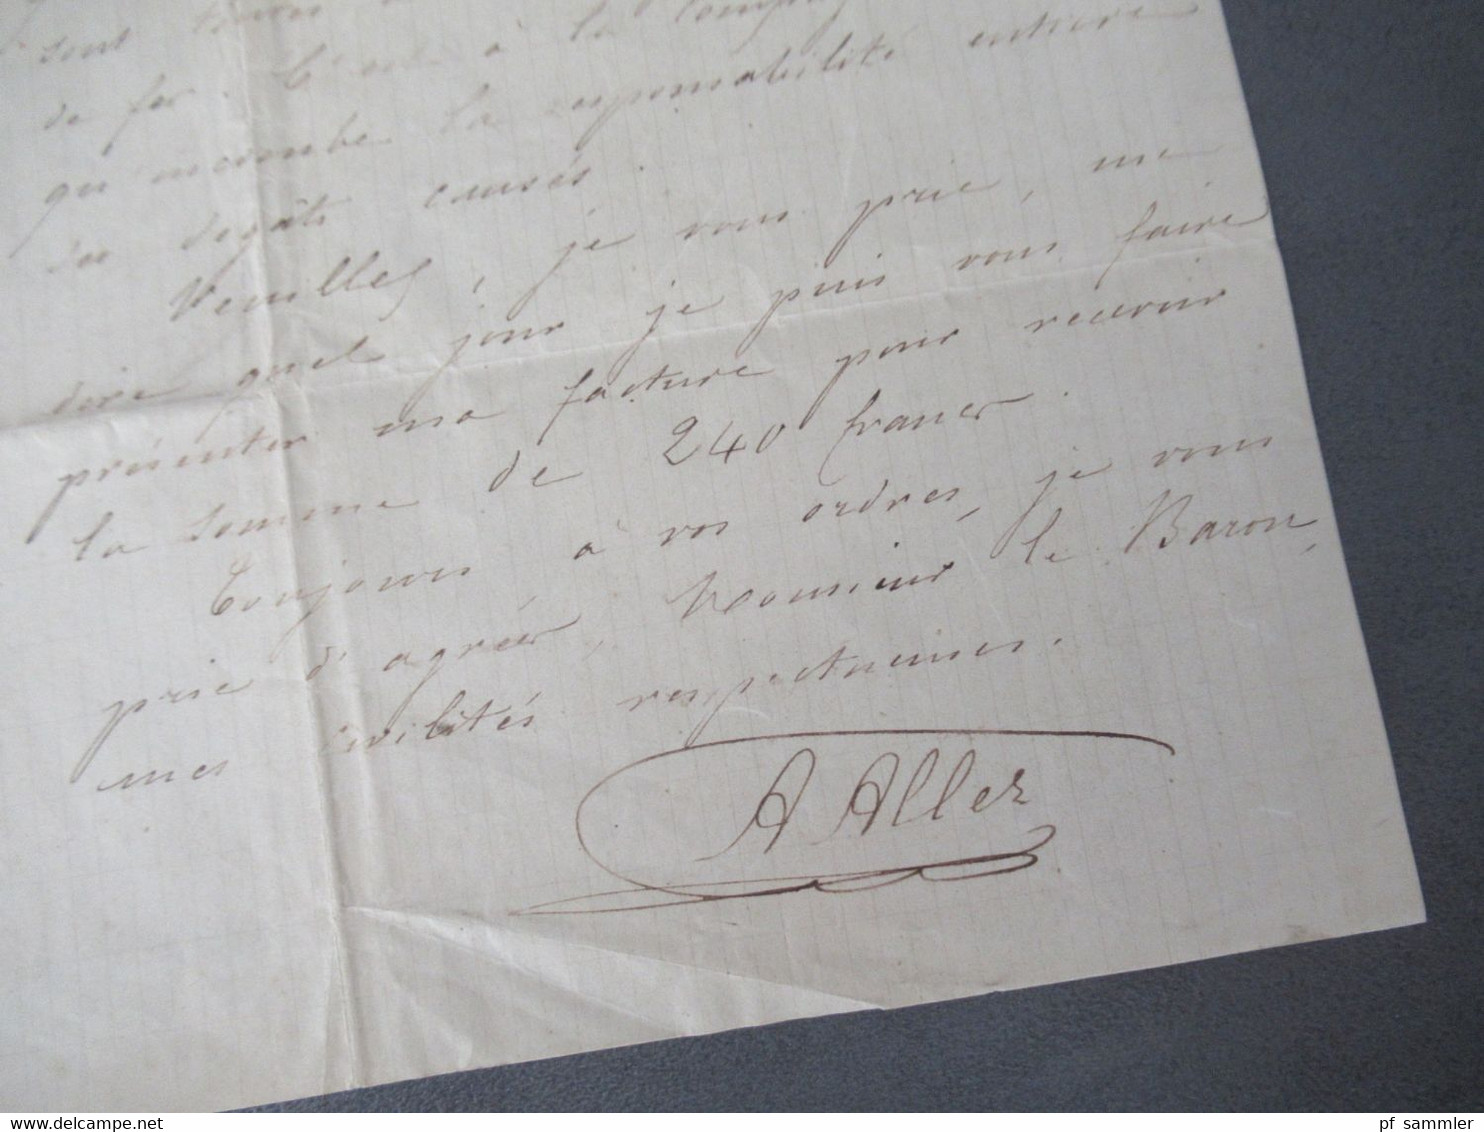 de fer. C'est à la
qu'incombe la responsabilité entière
des dégâts causés.
Veuillez, je vous prie, me
dire quel jour je puis vous faire
présenter ma facture pour recevoir
la somme de 240 francs.
Toujours à vos ordres, je vous
prie d'agréer, Monsieur le Baron,
mes civilités respectueuses.
A Allez
pf_sammler